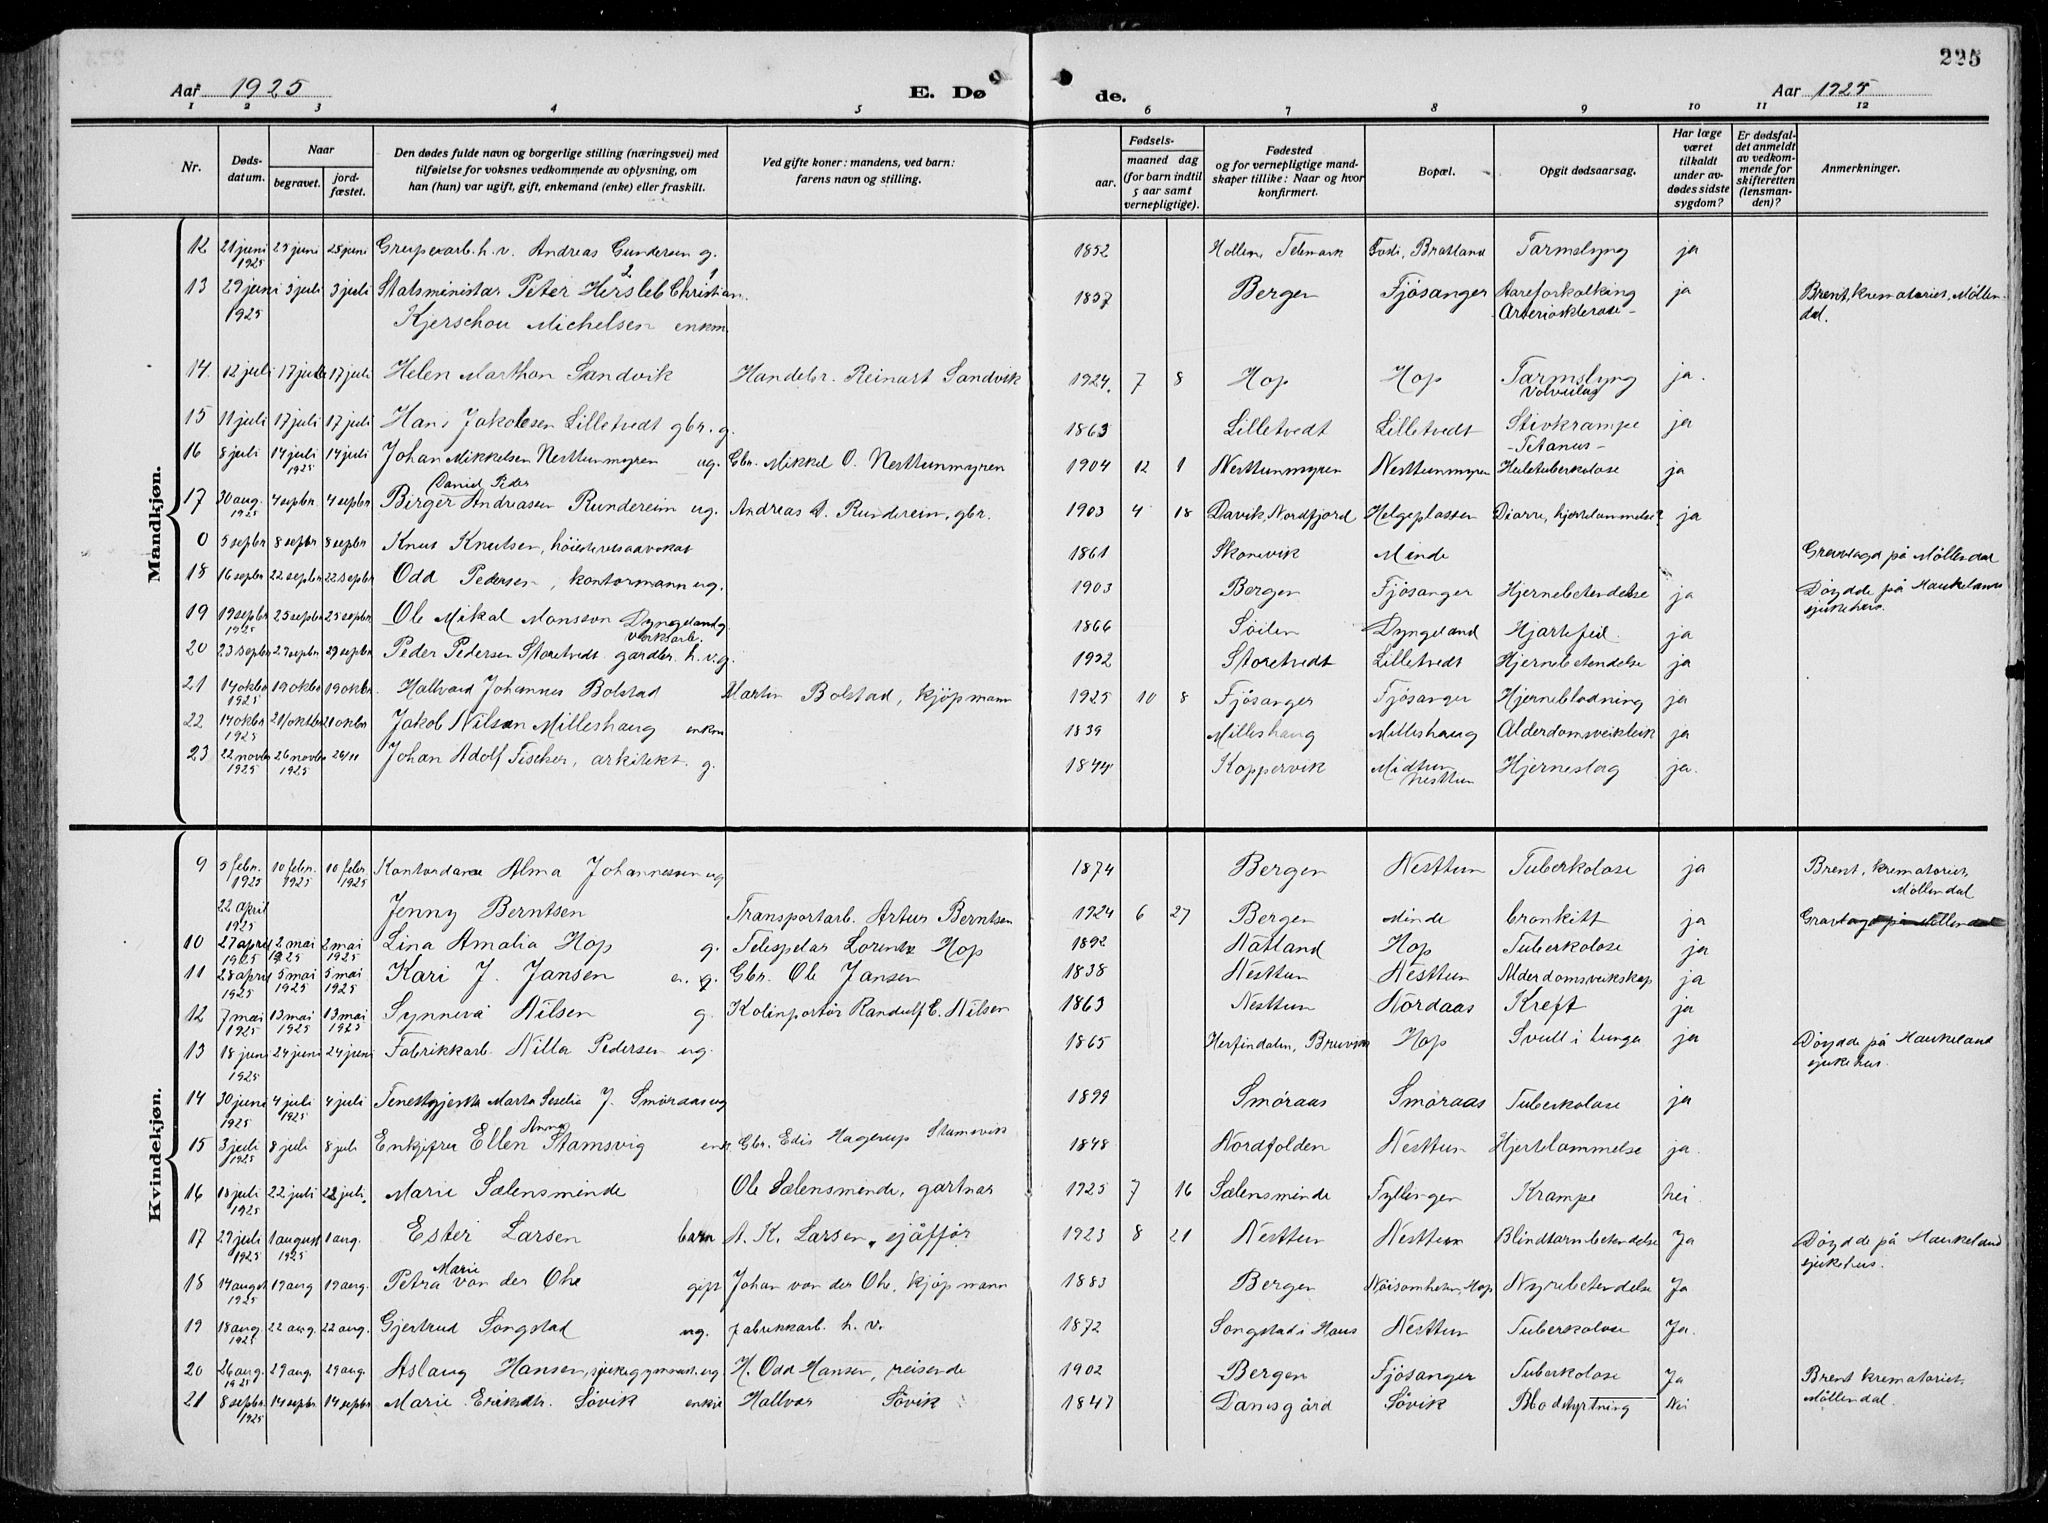 225
Aar 1925
E. Dø
de.
Aar 1925
1 2 3 4 5 6 7 8 9 10 11 12
Nr.
Døds-
datum.
Naar
begravet.
jord-
fæstet.
Den dødes fulde navn og borgerlige stilling (næringsvei) med
tilføielse for voksnes vedkommende av oplysning, om
han (hun) var ugift, gift, enkemand (enke) eller fraskilt.
Ved gifte koner: mandens, ved barn:
farens navn og stilling.
Fødsels-
aar.
maaned dag
(for barn indtil
5 aar samt
vernepligtige).
Fødested
og for vernepligtige mand-
skaper tillike: Naar og hvor
konfirmert.
Bopæl.
Opgit dødsaarsag.
Har læge
været
tilkaldt
under av-
dødes sidste
sygdom?
Er dødsfal-
det anmeldt
av vedkom-
mende for
skifteretten
(lensman-
den)?
Anmerkninger.
Mandkjøn.
12 21 juni 1925 25 juni 25 juni h. v. Andreas Gundersen g. 1852 Hollen, Telemark Bratland Tarmslyng ja
13 29 juni 1925 3 juli 3 juli Statsminister Peter Hersleb 2 Christian 1 1857 Bergen Fjøsanger Aareforkalking ja Brent, krematoriet, Møllen-
Kjerschou Michelsen enkm. Arteriosklerose- dal.
14. 12 juli 17 juli 17 juli Helen Marthon Sandvik Handelsr. Reinart Sandvik 1924. 7 8 Hop Hop Tarmslyng ja.
Volvulus
15 11 juli 17 juli 17 juli Hans Jakobsen Lilletvedt gbr. g. 1863 Lilletvedt Lilletvedt Stivkrampe ja
-Tetanus-
16 8 juli 14 juli 1925 14 juli Johan Mikkelsen Nesttunmyren ug. Gbr. Mikkel O. Nesttunmyren 1904 12 1 Nesttunmyren Nesttunmyren ja
Daniel Peder
17 30 aug. 1925 4 septbr 4 septbr Birger Andreassen Rundereim ug. Andreas D. Rundereim, gbr. 1903 4 18 Davik, Nordfjord Helgeplassen Diarre, hjertelammelse? ja
0 5 septbr 8 septbr 8 septbr Knut Knutsen, høiesteretsadvokat 1861 Skonevik Minde Gravlagd på Møllendal
18 16 septbr 22 septbr 22 septbr Odd Pedersen, kontormann ug. 1903 Bergen Fjøsanger Hjernebetendelse ja Døydde på Haukelands
sjukehus.
19 19 septbr 1925 25 septbr 25 septbr Ole Mikal Monsson Dyngeland g. 1866 Søilen Dyngeland Hjartefeil. ja
verksarb.
20 23 septbr 29 septbr 29 septbr Peder Pedersen Storetvedt gardbr. h. v. g. Storetvedt Lilletvedt Hjernebetendelse ja
21 14 oktbr 1925 19 oktbr 19 oktbr. Hallvard Johannes Bolstad Martin Bolstad, kjøpmann 1925 10 8 Fjøsanger Fjøsanger Hjerneblødning ja
22 14 oktbr 1925 21 oktbr 21 oktbr Jakob Nilsen Milleshaug enkm 1839 Milleshaug Milleshaug Alderdomsveikleik ja
23 22 novbr 1925 26 novbr 1925 26/11 Johan Adolf Fischer, arkitekt. g. 1844 Koppervik Midtun Hjerneslag ja.
Nesttun
Kvindekjøn.
9 5 febr. 1925 10 febr. 1925 10 febr 1925 Kontordame Alma Johannessen ug 1874 Bergen Nesttun Tuberkolose ja Brent, krematoriet,
Møllendal
22 april 1925 Jenny Berntsen Transportarb. Artur Berntsen 1924 6 27 Bergen Minde bronkitt ja Gravlagd på Møllendal
10 27 april 1925 2 mai 1925 2 mai 1925 Lina Amalia Hop g. Lorentz Hop 1892 Natland Hop Tuberkolose ja
11 28 april 1925 5 mai 1925 5 mai 1925 Kari J. Jansen e. g. Gbr. Ole Jansen 1838 Nesttun Nesttun Alderdomsveikskap ja
12 7 mai 1925 13 mai 1925 13 mai 1925 Synneva Nilsen g. Kolinportør Randulf E. Nilsen 1863 Nesttun Nordaas Kreft ja
13 18 juni 1925 24 juni 24 juni Fabrikkarb. Nilla Pedersen ug. 1865 Herfindalen, Bruvik Hop Svull i lunga ja Døydde på Haukeland
sjukehus.
14 30 juni 1925 4 juli 1925 4 juli Marta Seselia J. Smøraas ug 1899 Smøraas Smøraas Tuberkolose ja
Anna
15 3 juli 1925 8 juli 8 juli Enkjefru Ellen Stamsvig enk. Gbr. Edis Hagerup Stamsvik 1848 Nordfolden Nesttun Hjertelammelse ja.
16 18 juli 1925 22 juli 22 juli. Marie Sælensminde Ole Sælensminde, gartnar 1925 7 16 Sælensminde Tyllingen Krampe nei.
17 29 juli 1925 1 august 1925 1 aug. Ester Larsen barn A. K. Larsen, sjåffør 1923 8 21 Nesttun Nesttun Blindtarmbetendelse Ja Døydde på Haukeland
sjukehus.
Marie
18 14 august 1925 19 aug 19 aug. Petra von der Ohe gift Johan von der Ohe, kjøpmann 1883 Bergen Nøisomheten, Hop Nyrebetendelse Ja
19 18 aug 1925 22 aug. 22 aug. Gjertrud Songstad ug. fabrikkarb. h. v. 1872 Songstad i Haus Nesttun Tuberkolose Ja.
20 26 aug. 1925 29 aug. 29 aug. Aslaug Hansen, sjukegymnast. ug H. Odd Hansen, reisende 1902 Bergen Fjøsanger Tuberkolose Ja Brent krematoriet,
Møllendal.
21 8 septbr 1925 14 septbr 14 septbr Marie Eriksdtr. Søvik enkje Hallvor Søvik 1847 Damsgård Søvik Blodstyrtning Nei